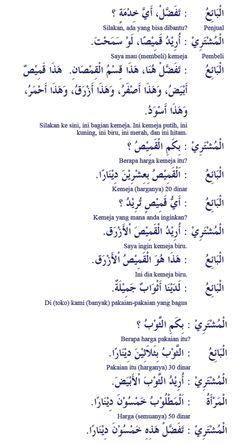 الْبَائِعُ : تَفَضَّلْ، أَيَّ خِدْمَةٍ ؟
Silakan, ada yang bisa dibantu? Penjual
الْمُشْتَرِيْ : أُرِيْدُ قَمِيْصًا، لَوْ سَمَحْتَ.
Saya mau (membeli) kemeja Pembeli
الْبَائِعُ : تَفَضَّلْ هُنَا، هَذَا قِسْمُ الْقُمْصَانِ. هَذَا قَمِيْصٌ
أَبْيَضُ، وَهَذَا أَصْفَرُ، وَهَذَا أَزْرَقُ، وَهَذَا أَحْمَرُ،
وَهَذَا أَسْوَدُ.
Silakan ke sini, ini bagian kemeja. Ini kemeja putih, ini
kuning, ini biru, ini merah, dan ini hitam.
الْمُشْتَرِيْ : بِكَمِ الْقَمِيْصُ ؟
Berapa harga kemeja itu?
الْبَائِعُ : اَلْقَمِيْصُ بِعِشْرِيْنَ دِيْنَارًا.
Kemeja (harganya) 20 dinar
الْبَائِعُ : أَيَّ قَمِيْصٍ تُرِيْدُ ؟
Kemeja yang mana anda inginkan?
الْمُشْتَرِيْ : أُرِيْدُ الْقَمِيْصَ الْأَزْرَقَ.
Saya ingin kemeja biru.
الْبَائِعُ : هَذَا هُوَ الْقَمِيْصُ الْأَزْرَقُ.
Ini dia kemeja biru.
الْبَائِعُ : لَدَيْنَا أَثْوَابٌ جَمِيْلَةٌ.
Di (toko) kami (banyak) pakaian-pakaian yang bagus
الْمُشْتَرِيْ : بِكَمِ الثَّوْبُ ؟
Berapa harga pakaian itu?
الْبَائِعُ : الثَّوْبُ بِثَلَاثِيْنَ دِيْنَارًا.
Pakaian itu (harganya) 30 dinar
الْمُشْتَرِيْ : أُرِيْدُ الثَّوْبَ الْأَبْيَضَ.
الْمَرْأَةُ : اَلْمَطْلُوْبُ خَمْسُوْنَ دِيْنَارًا.
Harga (semuanya) 50 dinar
الْمُشْتَرِيْ : تَفَضَّلْ هَذِهِ خَمْسُوْنَ دِيْنَارًا.